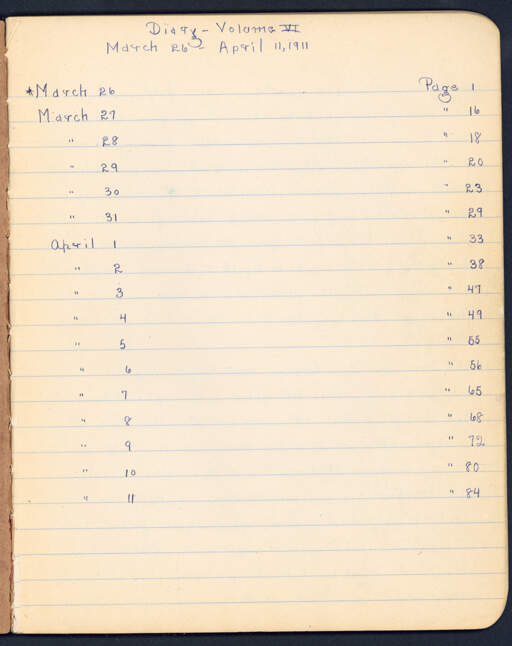 Diary - Volume VI
March 26 - April 11, 1911
*March 26 Page 1
March 27 " 16
" 28 " 18
" 29 " 20
" 30 " 23
" 31 " 29
April 1 " 33
" 2 " 38
" 3 " 47
" 4 " 49
" 5 " 55
" 6 " 56
" 7 " 65
" 8 " 68
" 9 " 72
" 10 " 80
" 11 " 84